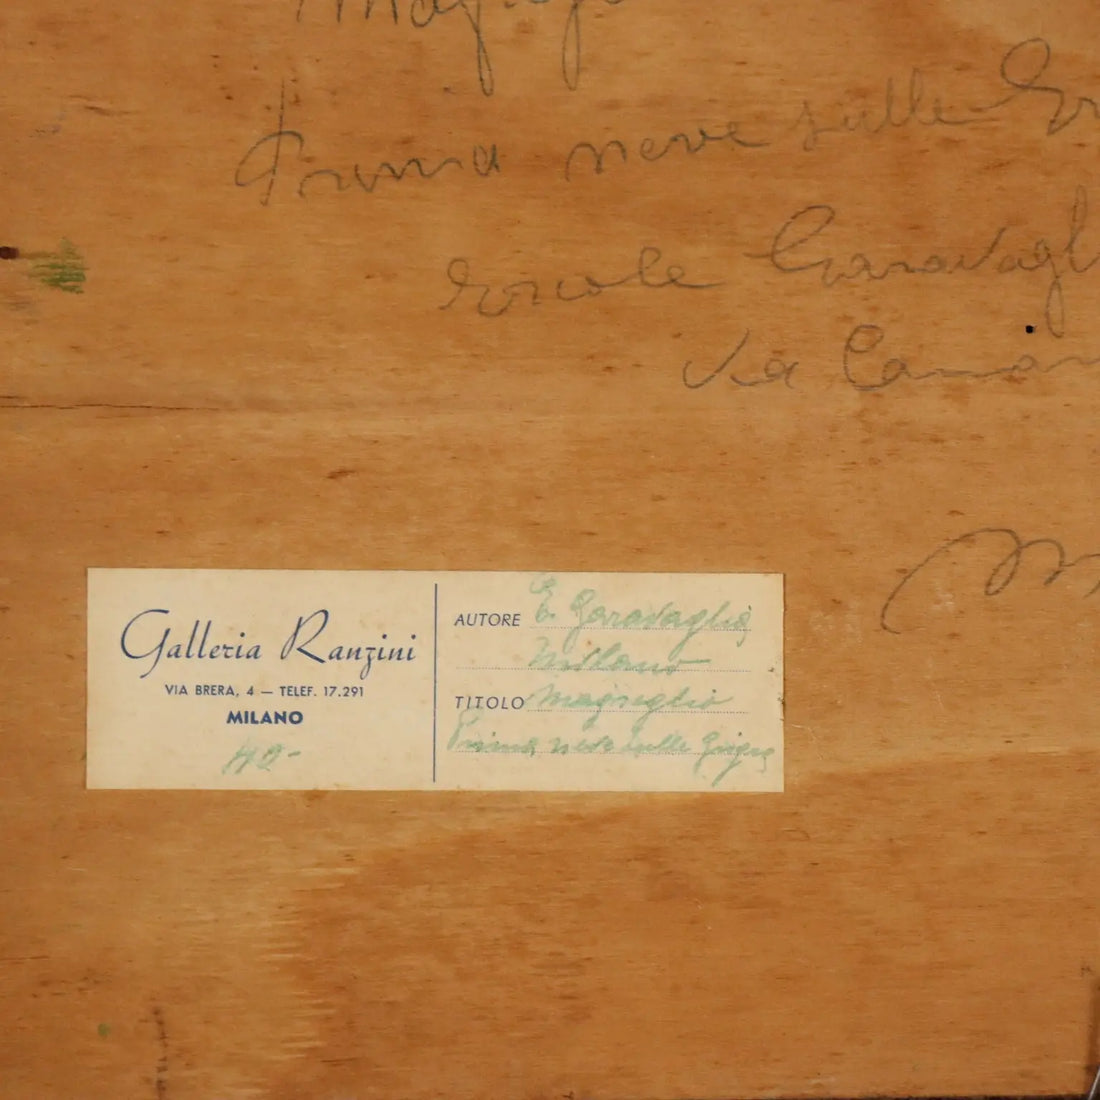 Prima neve sulle
Ercole Garavagl
Via
M
Galleria Ranzini
VIA BRERA, 4 — TELEF. 17.291
MILANO
40-
AUTORE E. Garavaglia
Milano
TITOLO Magreglio
Prima neve sulle Grigne